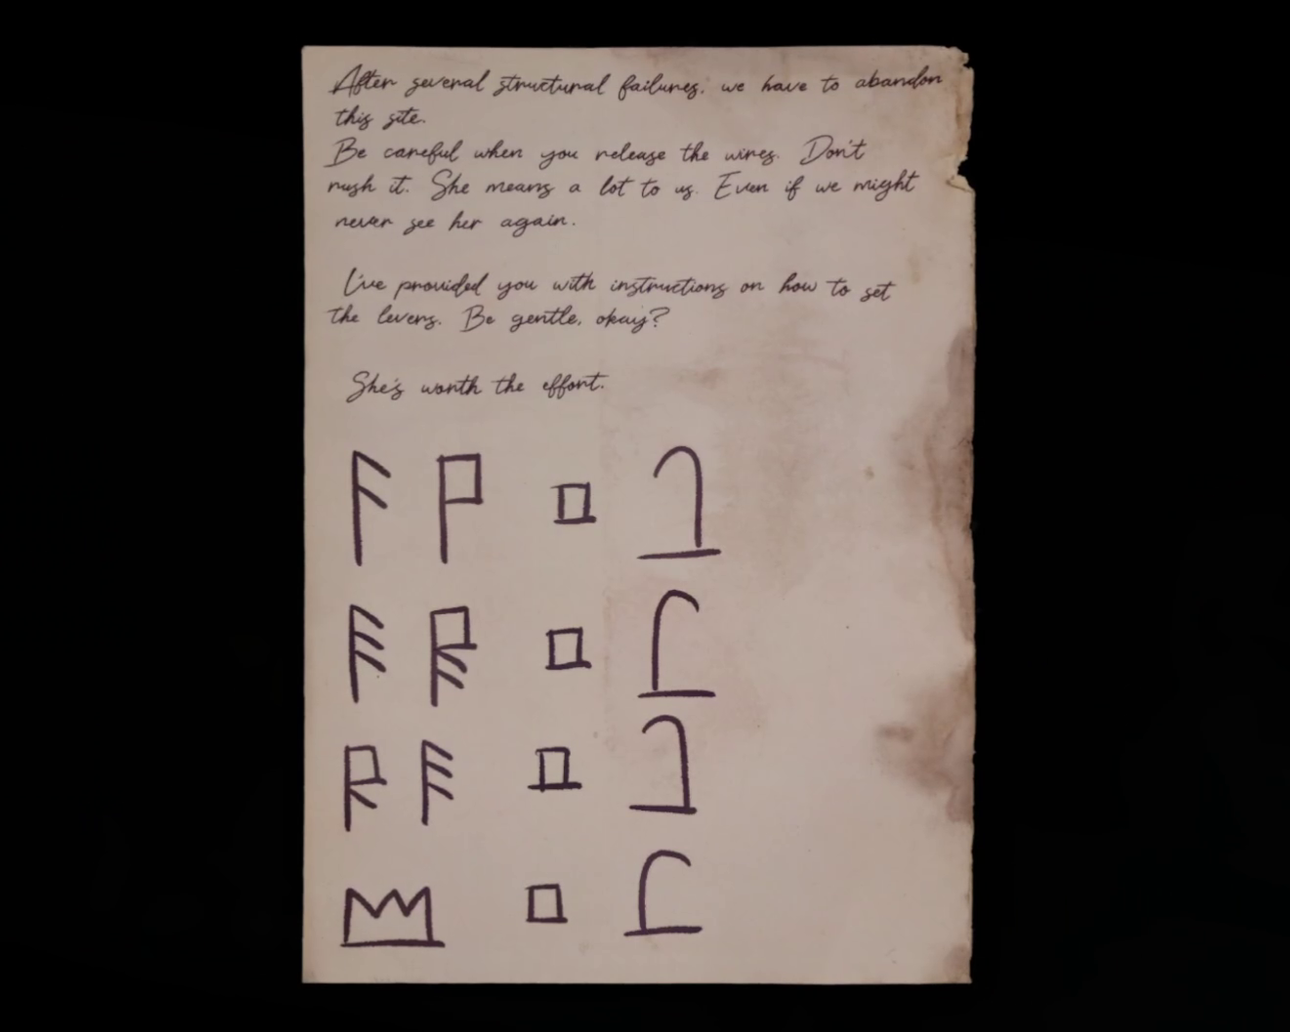 After several structural failures, we have to abandon
this site.
Be careful when you release the wires. Don't
rush it. She means a lot to us. Even if we might
never see her again.
I've provided you with instructions on how to set
the levers. Be gentle, okay?
She's worth the effort.